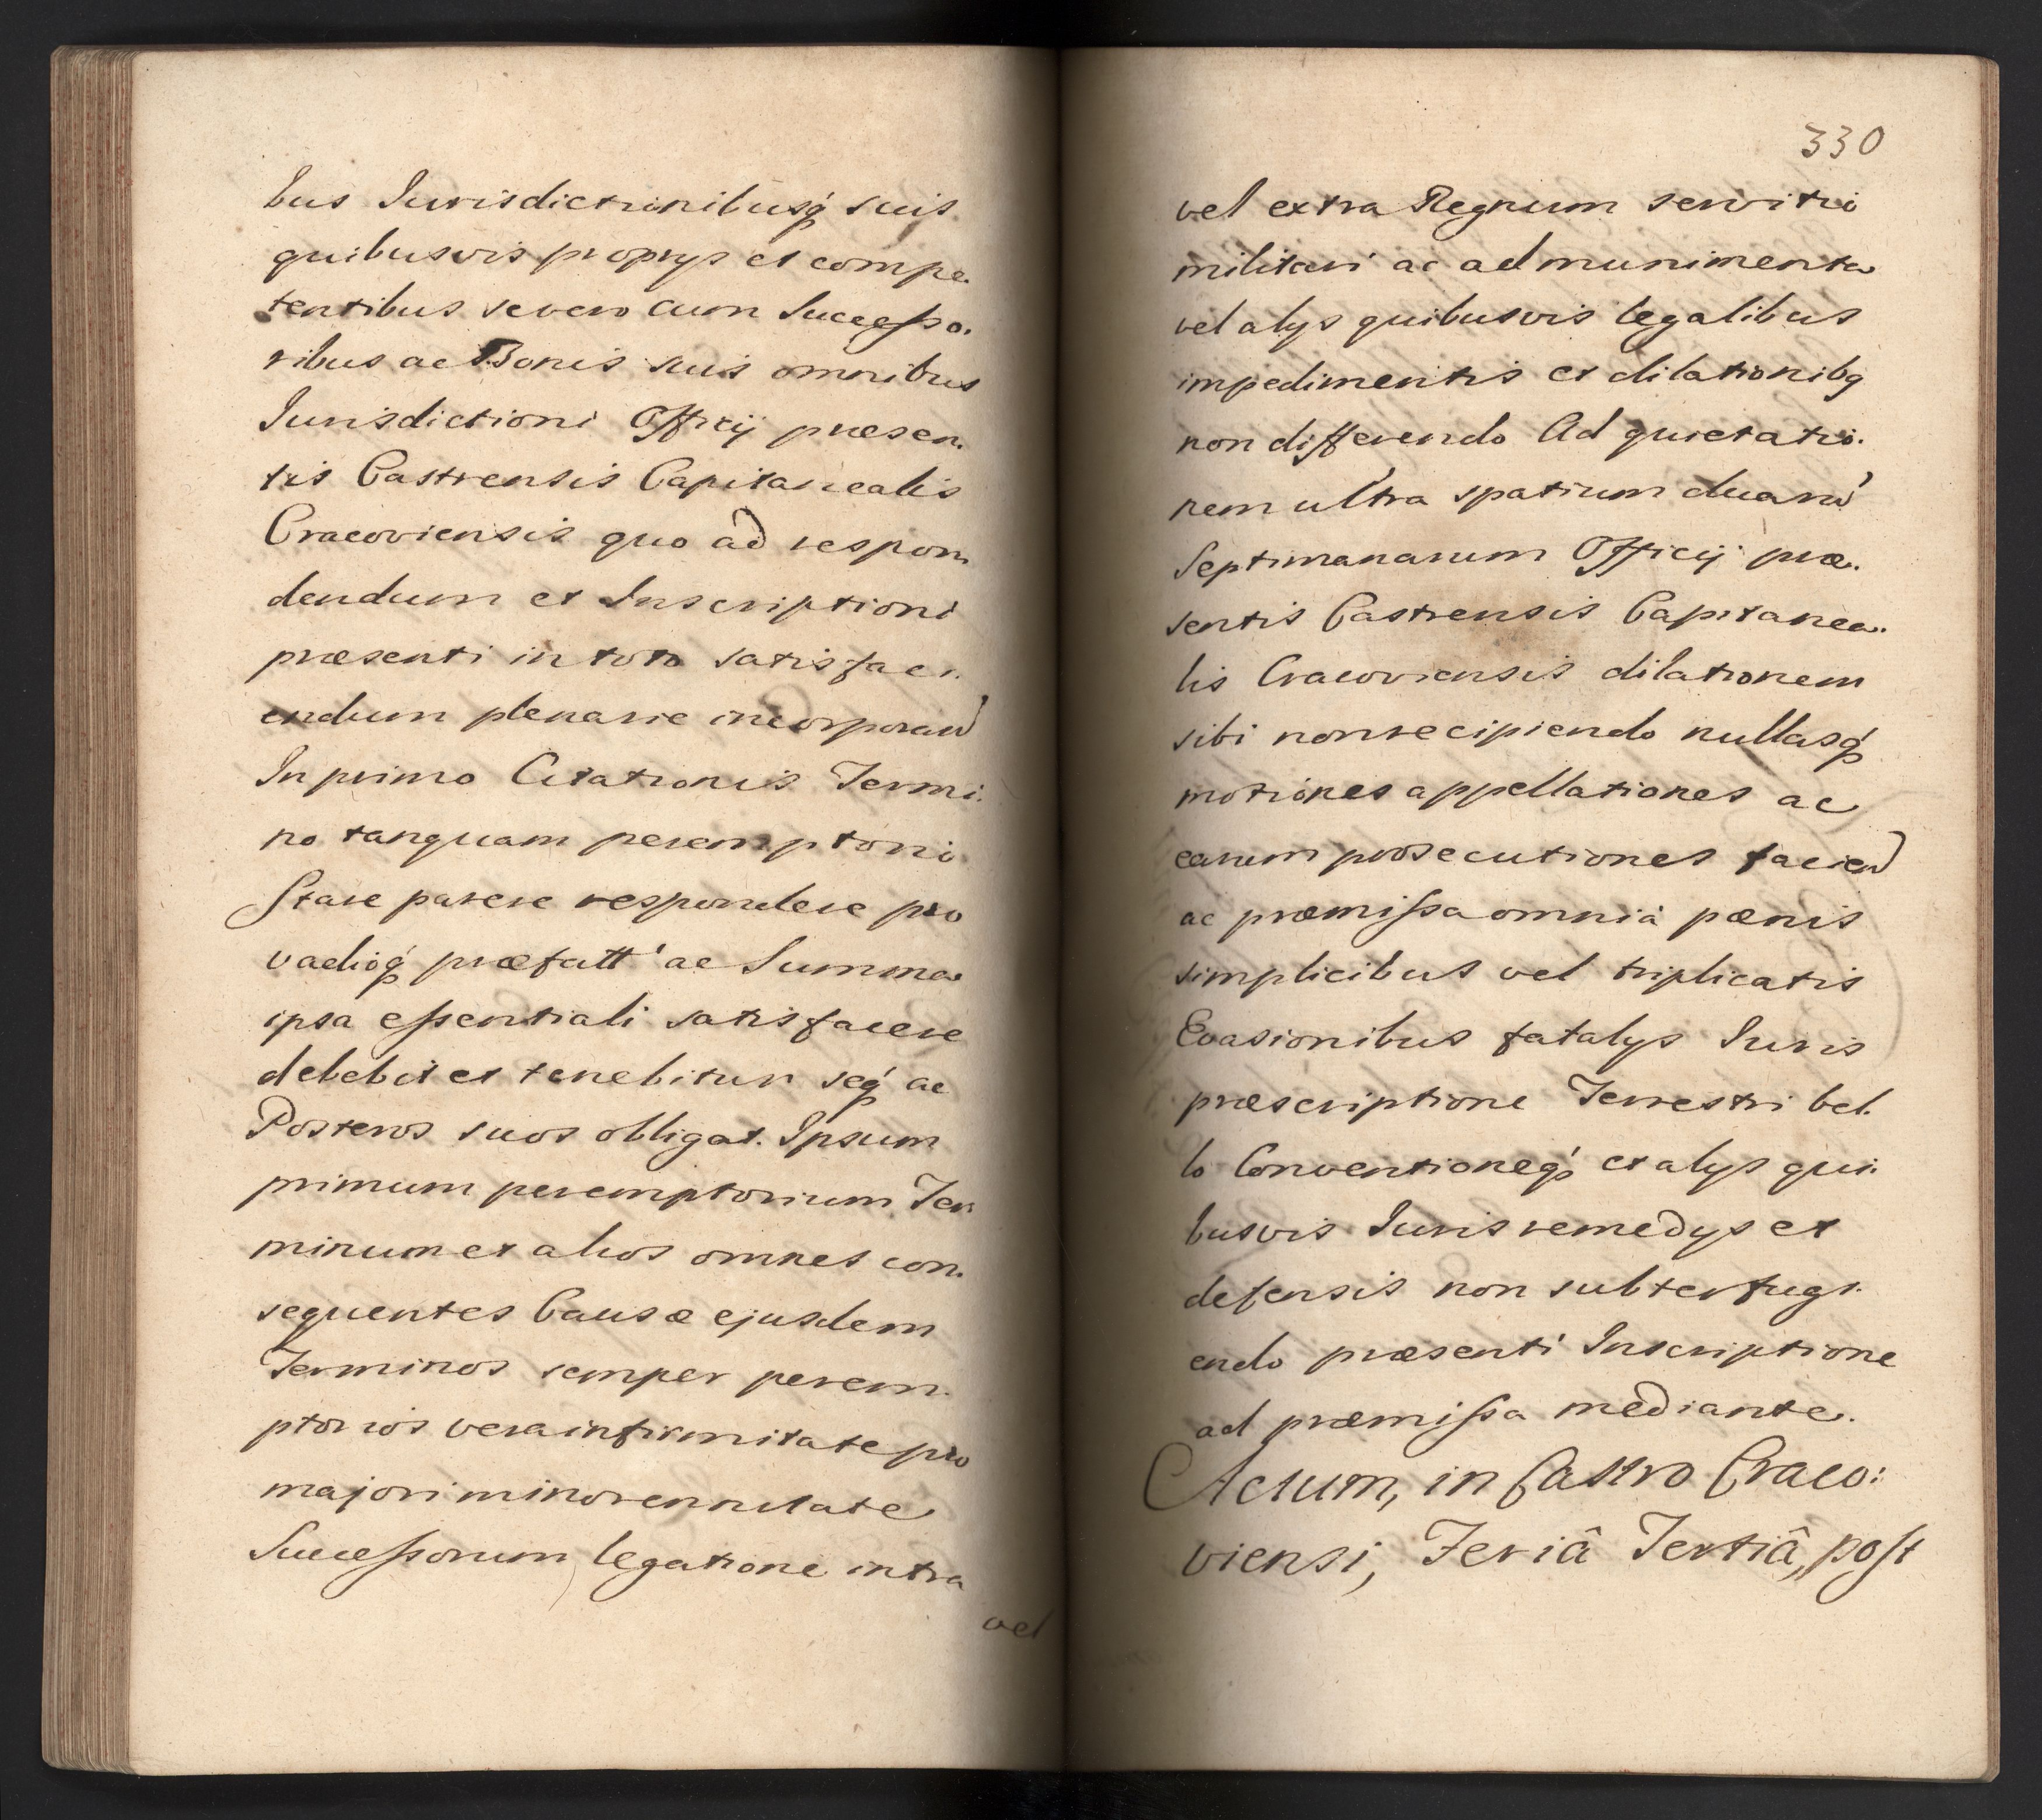 bus Jurisdictionibusq́ suis
quibusvis proprys et compe.
tentibus severo cum Succeſso.
ribus ac Bonis suis omnibus
Jurisdictioni Officij præsen.
tis Castrensis Capitanealis
Cracoviensis quo ad respon
dendum et Inscriptioni
præsenti in toto satisfaci.
endum plenarie incorporan̄
In primo Citationis Termi.
no tanquam peremptorio
Stare parere respondere pro
vadioq́ præfatt' ac Summa
ipsa eſsentiali satisfacere
debebit et tenebitur seq́ ac
Posteros suos obligat. Ipsum
primum peremptorium Ter
minum et alios omnes con.
sequentes Causæ ejusdem
Terminos semper perem.
ptorios vera infirmitate pro
majori minorennitate
Succeſsorum legatione intra
vel
330
vel extra Regnum servitio
militari ac ad munimenta
vel alys quibusvis legalibus
impedimentis et dilationibq
non differendo Ad quietatio.
nem ultra spatium duarū
Septimanarum Officij præ.
sentis Castrensis Capitanea.
lis Cracoviensis dilationem
sibi non recipiendo nullasq́
motiones appellationes ac
earum prosecutiones facien̄
ac præmiſsa omnia pænis
simplicibus vel triplicatis
Evasionibus fatalys Juris
præscriptione Terrestri bel.
lo Conventioneq́ et alys qui.
busvis Juris remedys et
defensis non subterfugi.
endo præsenti Inscriptione
ad præmiſsa mediante.
Actum, in Castro Craco:
viensi, Feriâ Tertiâ, poſt